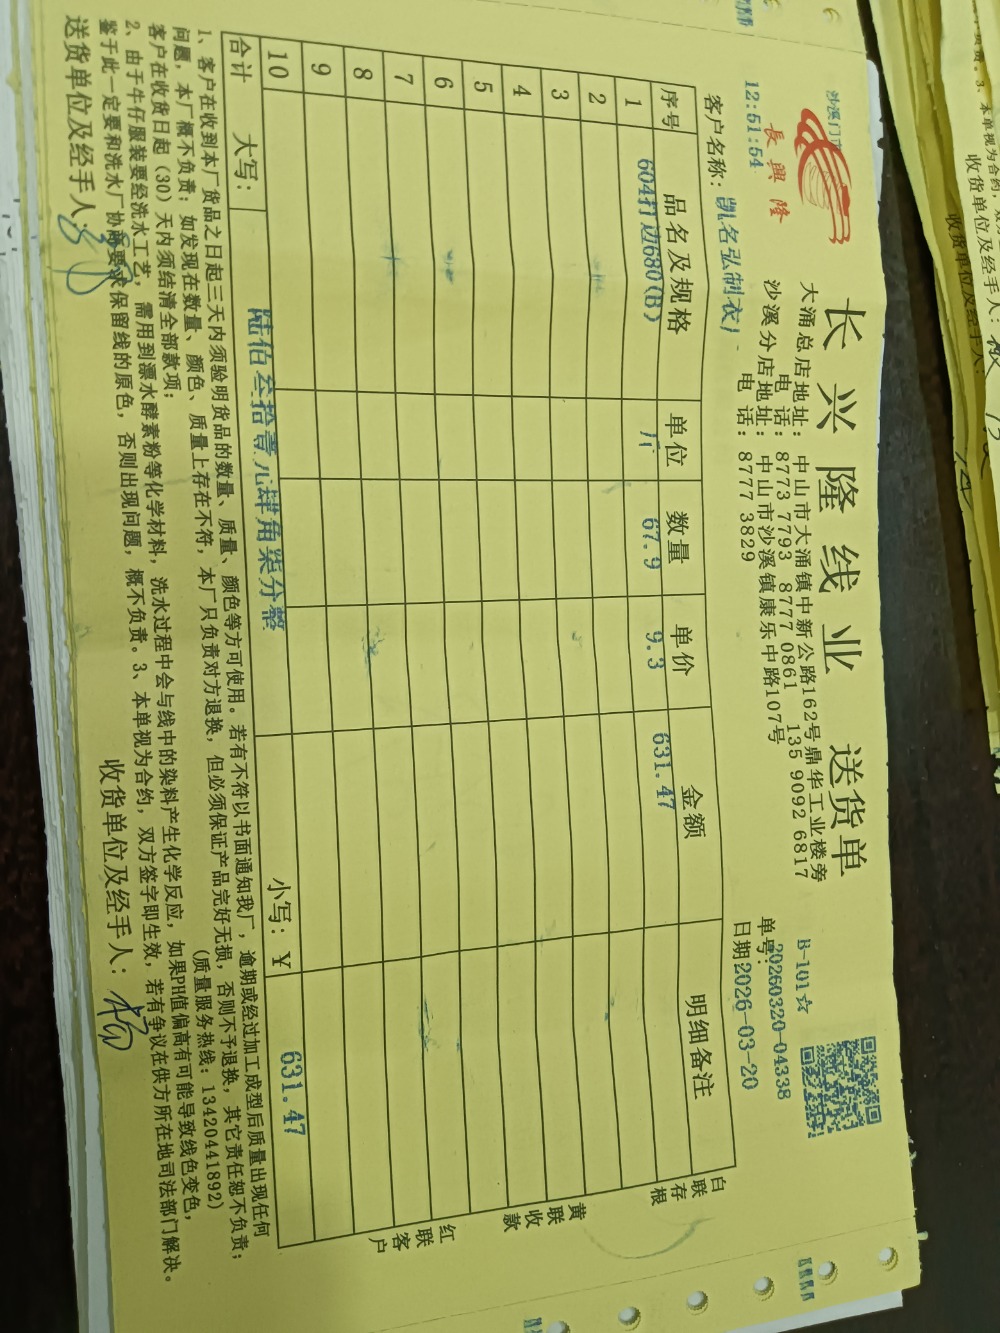 长兴隆线业 送货单
沙溪门市
長興隆
大涌总店地址: 中山市大涌镇中新公路162号鼎华工业楼旁
电话: 8773 7793 8777 0861 135 9092 6817
沙溪分店地址: 中山市沙溪镇康乐中路107号
电话: 8777 3829
B-101☆
单号:20260320-04338
日期:2026-03-20
12:51:54
客户名称: 凯名弘制衣厂
序号 品名及规格 单位 数量 单价 金额 明细备注
1 604打边680(B) 斤 67.9 9.3 631.47
2
3
4
5
6
7
8
9
10
合计 大写: 陆佰叁拾壹元肆角柒分整 小写: ¥ 631.47
白联存根
黄联收款
红联客户
1、客户在收到本厂货品之日起三天内须验明货品的数量、质量、颜色等方可使用。若有不符以书面通知我厂, 逾期或经过加工成型后质量出现任何
问题, 本厂概不负责; 如发现在数量、颜色、质量上存在不符, 本厂只负责对方退换, 但必须保证产品完好无损, 否则不予退换, 其它责任恕不负责;
客户在收货日起 (30) 天内须结清全部款项; (质量服务热线: 13420441892)
2、由于牛仔服装要经洗水工艺, 需用到漂水酵素粉等化学材料, 洗水过程中会与线中的染料产生化学反应, 如果PH值偏高有可能导致线色变色,
鉴于此一定要和洗水厂协商要求保留线的原色, 否则出现问题, 概不负责。3、本单视为合约, 双方签字即生效, 若有争议在供方所在地司法部门解决。
送货单位及经手人: 收货单位及经手人: 杨
3、本单视为合约,
收货单位及经手人:
收货单位及经手人: